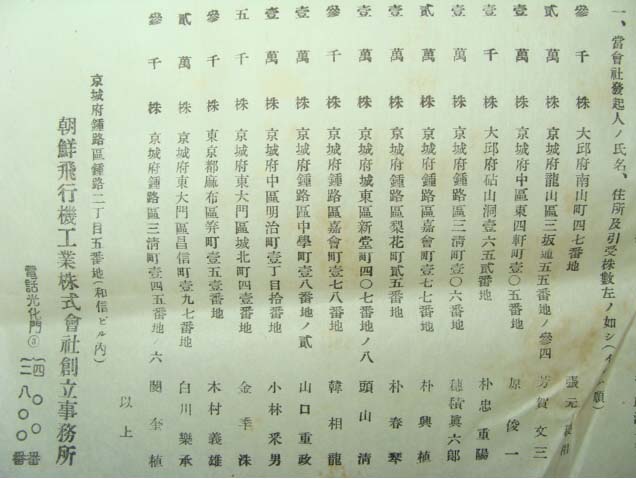 一、當會社發起人ノ氏名、住所及引受株數左ノ如シ(イロハ順)
參千株 大邱府南山町四七番地 張元
貳萬株 京城府龍山區三坂通五五番地ノ參四 芳賀文三
壹萬株 京城府中區東四軒町壹〇五番地 原俊一
壹千株 大邱府砧山洞壹六五貳番地 朴忠重陽
壹萬株 京城府鍾路區三淸町壹〇六番地 穗積眞六郎
貳萬株 京城府鍾路區嘉會町壹七七番地 朴興植
壹萬株 京城府鍾路區梨花町貳五番地 朴春琴
壹萬株 京城府城東區新堂町四〇七番地ノ八 頭山淸
參千株 京城府鍾路區嘉會町壹七八番地 韓相龍
壹萬株 京城府鍾路區中學町壹八番地ノ貳 山口重政
壹萬株 京城府中區明治町壹丁目拾番地 小林采男
五千株 京城府東大門區城北町四壹番地 金季洙
參千株 東京都麻布區笄町壹五壹番地 木村義雄
貳萬株 京城府東大門區昌信町壹九七番地 白川樂承
參千株 京城府鍾路區三淸町壹四五番地ノ六 閔奎植
以上
京城府鍾路區鍾路二丁目五番地(和信ビル內)
朝鮮飛行機工業株式會社創立事務所
電話光化門③